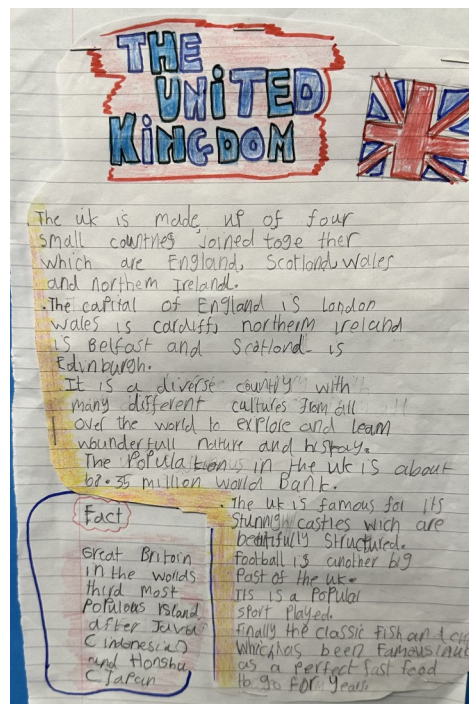 THE
UNiTED
KiNGDOM
The uk is made up of four
small countries joined toge ther
which are England, Scotland, wales
and northern Ireland.
.The capital of England is London
wales is cardiff, northern ireland
is Belfast and Scotland is
Edinburgh.
It is a diverse country with
many different cultures from all
over the world to explore and learn
wounderfull nature and history.
The Population in the uk is about
68.35 million world Bank.
Fact
Great Britain
in the worlds
third most
Populous island
after Java
C indonesia)
and Honshu
C Japan
. The uk is famous for its
Stunnig castles wich are
beatifully structured.
football is another big
Past of the uk.
Its is a Popular
sport played.
finally the classic fish and
which has been famous
as a perfect fast food
to go for years.